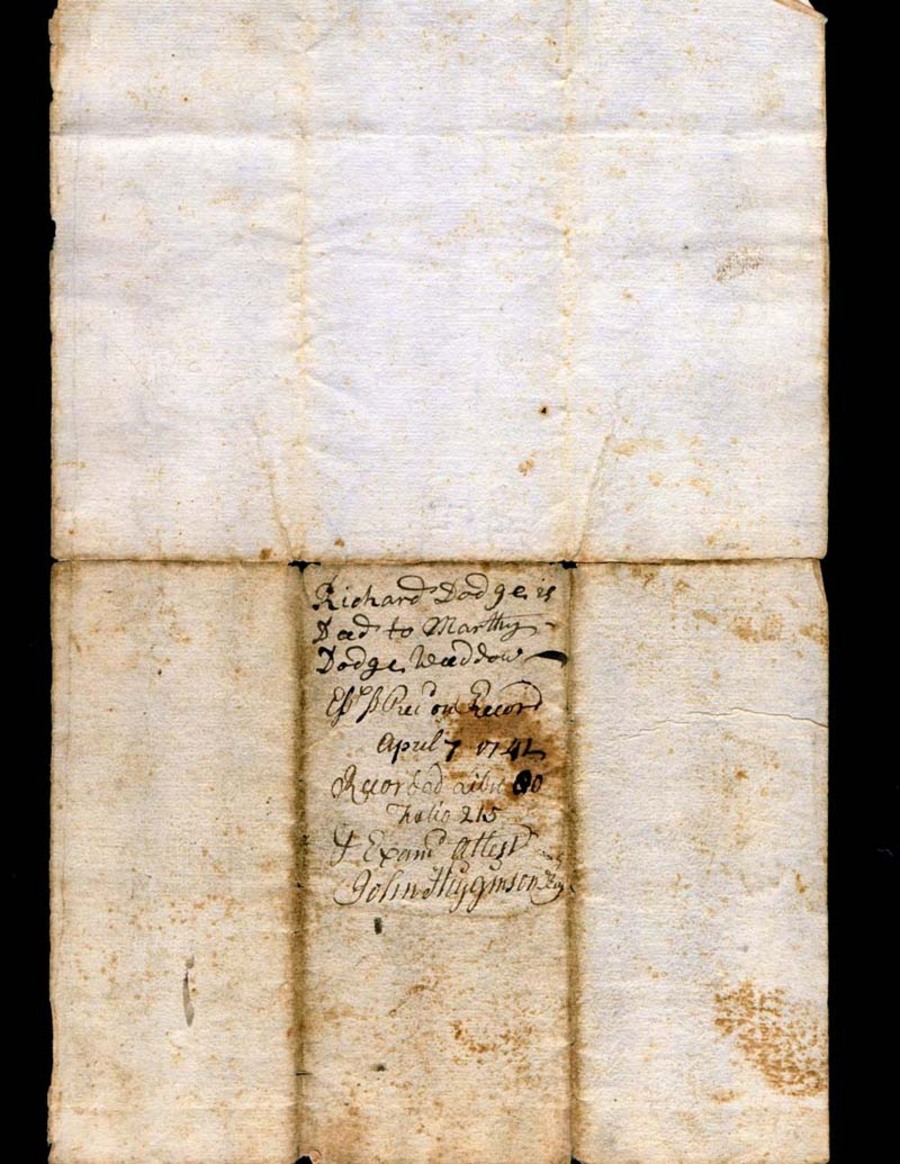 Richard Dodge is
Deed to Marthy
Dodge Weddow
Ess ss Rec'd on Record
April 7 1742
Recorded Libr 80
Folio 215
& Exam'd Attest
John Higginson Reg